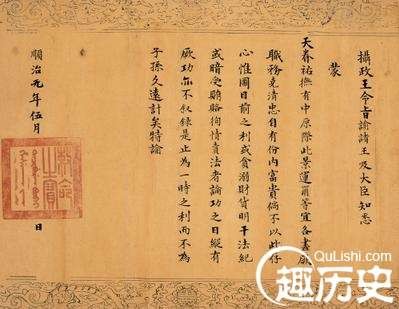 攝政王令旨諭諸王及大臣知悉
蒙
天眷祐撫有中原際此景運爾等宜各盡
職務克清忠自有份內富貴倘不以此存
心惟圖目前之利或貪溺財貨明干法紀
或暗受賄賂徇情賣法者論功之日縱有
厥功亦不叙錄是止為一時之利而不為
子孫久遠計矣特諭
順治元年伍月 日
QuLiShi.com
趣历史